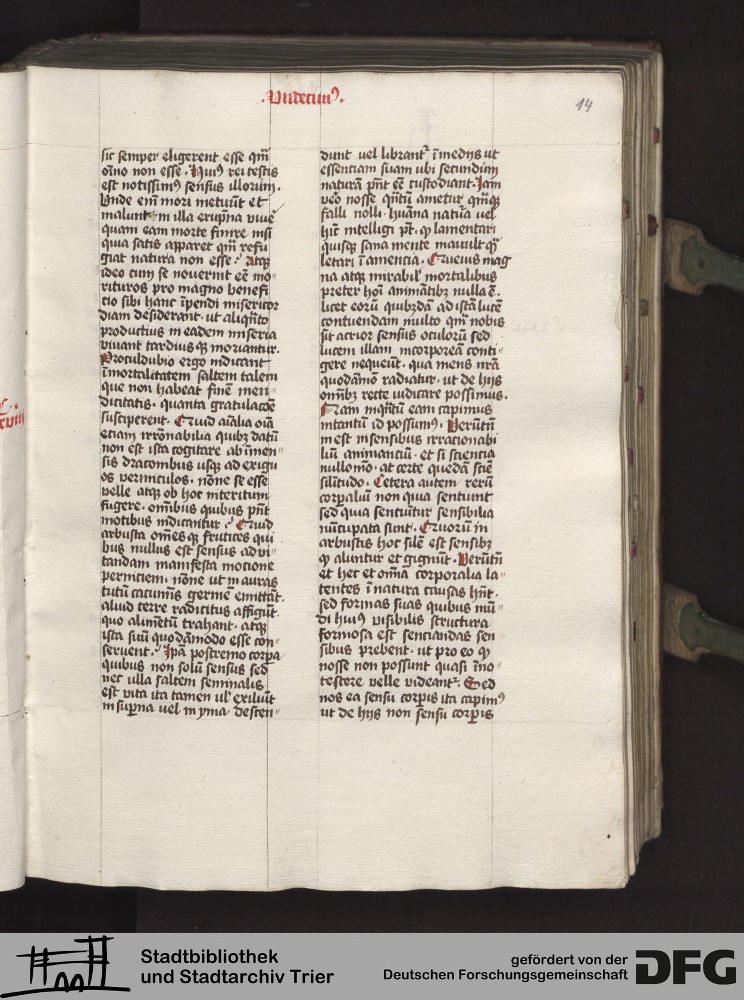 .Undecimꝰ.
14
sic semper eligerent esse qm̄
oīno non esse. Huiꝰ rei testis
est notissimꝰ sensus illorum.
Unde em̄ mori metuūt et
malunt in illa erūpna viuē
quam eam morte finire nisi
quia satis apparet qm̄ refu
giat natura non esse. Atqꝫ
ideo cum se nouerint eē mo
rituros pro magno benefi
tio sibi hanc īpendi misericor
diam desiderant. ut aliqn̄to
productius in eadem miseria
viuant tardius qꝫ moriantur.
Proculdubio ergo indicant
īmortalitatem saltem talem
que non habeat finē men
dicitatis. quanta gratulacōe
susciperent. Quid aīalia oīa
etiam irrōnabilia quibꝫ datū
non est ista cogitare ab īmen
sis draconibus usqꝫ ad exigu
os vermiculos. nōne se esse
velle atqꝫ ob hoc interitum
fugere. omībus quibus pn̄t
motibus indicantur. Quid
arbusta om̄es qꝫ frutices qui
bus nullus est sensus ad vi
tandam manifesta mocione
perniciem. nōne ut in auras
tutū cacumīs germē emittāt.
aliud terre radicitus affigūt.
quo alimētū trahant. atqꝫ
ista suū quodāmodo esse con
seruent. Ip̄a postremo corpa
quibus non solū sensus sed
nec ulla saltem seminalis
est vita ita tamen ul exiliūt
in supna vel in yma descen
dunt uel librantᷣ ī medijs ut
essenciam suam ubi secundum
naturā pn̄t eē custodiant. Iam
vēo nosse qn̄tū ametur qm̄qꝫ
falli nolit hūana natura vel
hīc intelligi pt. qꝫ lamentari
quisqꝫ sana mente mauult qꝫ̄
letari ī amencia. Que vis mag
na atqꝫ mirabil mortalibus
preter hoī animātibꝫ nulla ē.
licet eorū quibꝫdā ad istā lucē
contuendam multo qm̄ nobis
sit acrior sensus oculorū sed
lucem illam incorporeā conti
gere nequeūt. qua mens nr̄a
quodāmō radiatur. ut de hijs
omībꝫ recte iudicare possimus.
Nam inqn̄tū eam capimus
intantū id possumꝰ. Verūtn̄
inest in sensibus irrationabi
liū animanciū. et si sciencia
nullo mō. at certe quedā scīe
silitudo. Cetera autem rerū
corpaliū non quia sentiunt
sed quia sentiūtur sensibilia
nūcupata sunt. Quorū in
arbustis hoc silē est sensibꝫ
qꝫ aluntur et gignūt. Verūtn̄
et hec et om̄ia corporalia la
tentes ī natura causas hn̄t.
sed formas suas quibus mū
di huiꝰ visibilis structura
formosa est senciandas sen
sibus prebent. ut pro eo qꝫ
nosse non possunt quasi īno
tescere velle videantᷣ. Sed
nos ea sensu corpis ita capimꝰ
ut de hijs non sensu corpis
Stadtbibliothek
und Stadtarchiv Trier
gefördert von der
Deutschen Forschungsgemeinschaft
DFG